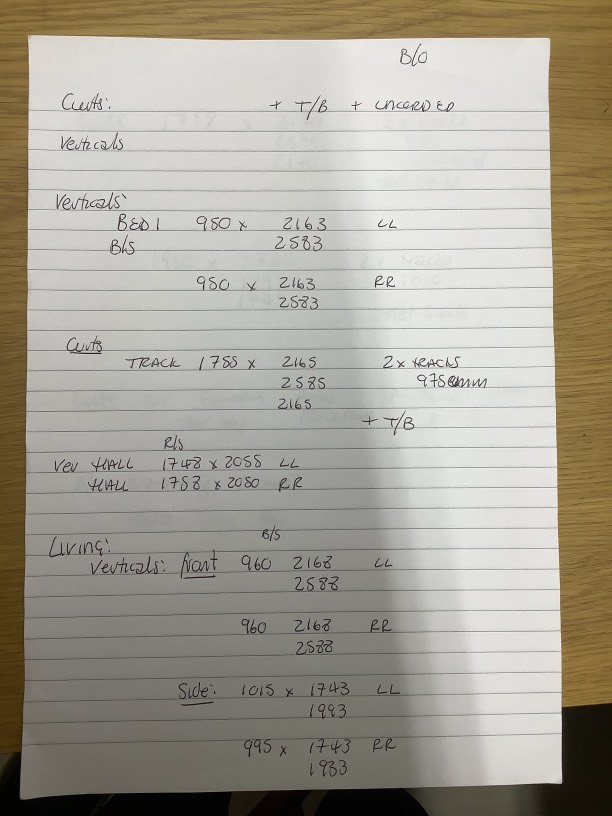 B/O
Curts: + T/B + UNCORDED
Verticals
Verticals:
BED 1 950 x 2163 LL
B/S 2583
950 x 2163 RR
2583
Curts
TRACK 1755 x 2165 2 x TRACKS
2585 975mm
2165
+ T/B
R/S
Ver HALL 1748 x 2055 LL
HALL 1758 x 2050 RR
B/S
Living:
Verticals: Front 960 2168 LL
2588
960 2168 RR
2588
Side: 1015 x 1743 LL
1993
995 x 1743 RR
1983